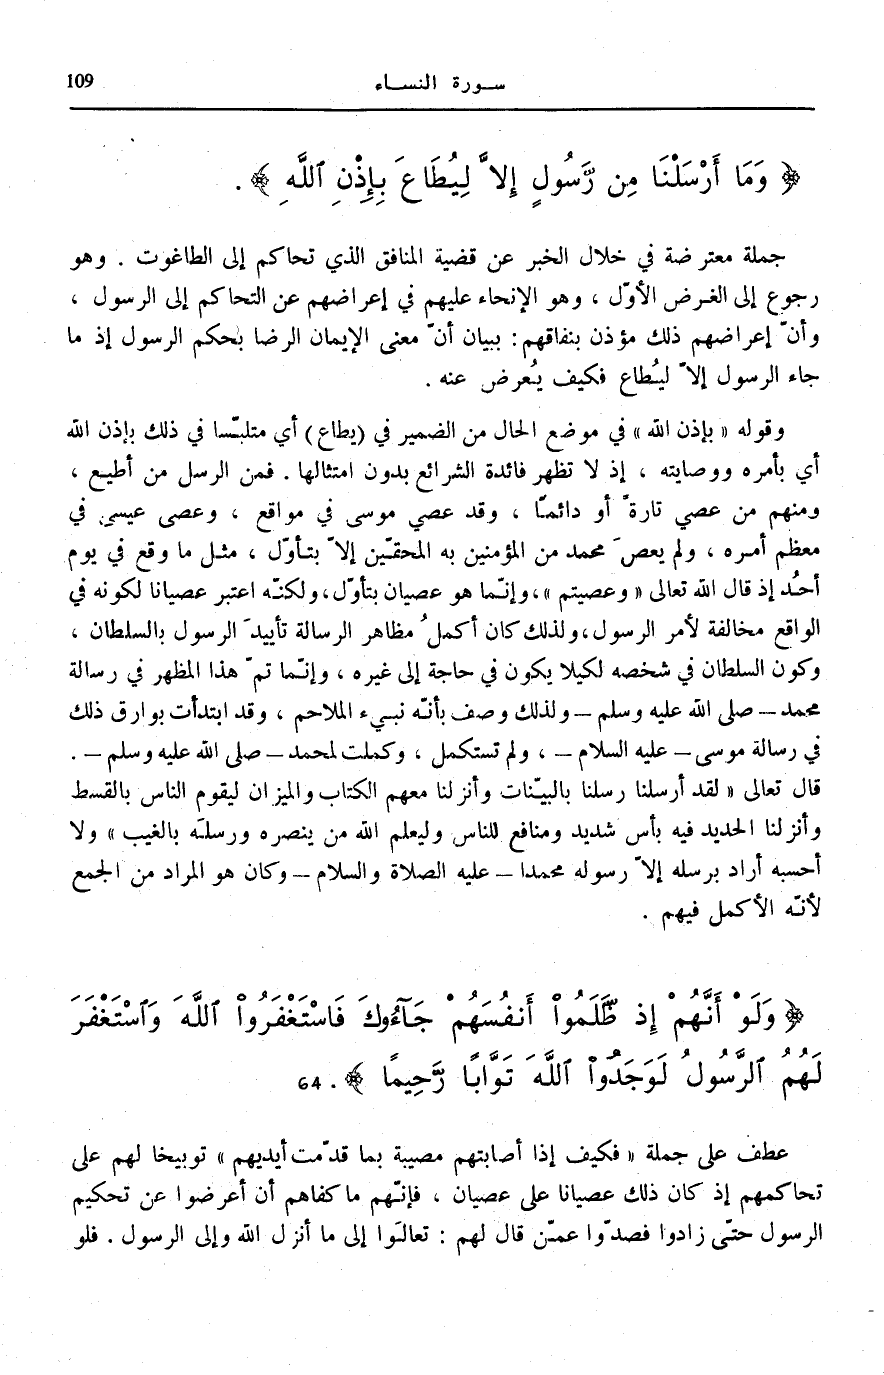 سورة النساء 109
﴿ وَمَا أَرْسَلْنَا مِن رَّسُولٍ إِلاَّ لِيُطَاعَ بِإِذْنِ ٱللَّهِ ﴾ .
جملة معترضة في خلال الخبر عن قضية المنافق الذي تحاكم إلى الطاغوت . وهو
رجوع إلى الغرض الأوّل ، وهو الإنحاء عليهم في إعراضهم عن التحاكم إلى الرسول ،
وأنّ إعراضهم ذلك مؤذن بنفاقهم : ببيان أنّ معنى الإيمان الرضا بحكم الرسول إذ ما
جاء الرسول إلاّ ليُطاع فكيف يُعرض عنه .
وقوله « بإذن الله » في موضع الحال من الضمير في (يطاع) أي متلبّسا في ذلك بإذن الله
أي بأمره ووصايته ، إذ لا تظهر فائدة الشرائع بدون امتثالها . فمن الرسل من أطيع ،
ومنهم من عصي تارة أو دائمًا ، وقد عصي موسى في مواقع ، وعصي عيسى في
معظم أمره ، ولم يعصَ محمد من المؤمنين به المحقّين إلاّ بتأوّل ، مثل ما وقع في يوم
أحُد إذ قال الله تعالى « وعصيتم »، وإنّما هو عصيان بتأوّل، ولكنّه اعتبر عصيانا لكونه في
الواقع مخالفة لأمر الرسول، ولذلك كان أكملُ مظاهر الرسالة تأييدَ الرسول بالسلطان ،
وكون السلطان في شخصه لكيلا يكون في حاجة إلى غيره ، وإنّما تمّ هذا المظهر في رسالة
محمد – صلى الله عليه وسلم – ولذلك وصف بأنّه نبيء الملاحم ، وقد ابتدأت بوارق ذلك
في رسالة موسى – عليه السلام – ، ولم تستكمل ، وكملت لمحمد – صلى الله عليه وسلم – .
قال تعالى « لقد أرسلنا رسلنا بالبيّنات وأنزلنا معهم الكتاب والميزان ليقوم الناس بالقسط
وأنزلنا الحديد فيه بأس شديد ومنافع للناس وليعلم الله من ينصره ورسلَه بالغيب » ولا
أحسبه أراد برسله إلاّ رسوله محمدا – عليه الصلاة والسلام – وكان هو المراد من الجمع
لأنّه الأكمل فيهم .
﴿ وَلَوْ أَنَّهُمْ إِذ ظَّلَمُواْ أَنفُسَهُمْ جَآءُوكَ فَاسْتَغْفَرُواْ ٱللَّهَ وَٱسْتَغْفَرَ
لَهُمُ ٱلرَّسُولُ لَوَجَدُواْ ٱللَّهَ تَوَّابًا رَّحِيمًا ﴾ . 64
عطف على جملة « فكيف إذا أصابتهم مصيبة بما قدّمت أيديهم » توبيخا لهم على
تحاكمهم إذ كان ذلك عصيانا على عصيان ، فإنّهم ما كفاهم أن أعرضوا عن تحكيم
الرسول حتّى زادوا فصدّوا عمّن قال لهم : تعالَوا إلى ما أنزل الله وإلى الرسول . فلو